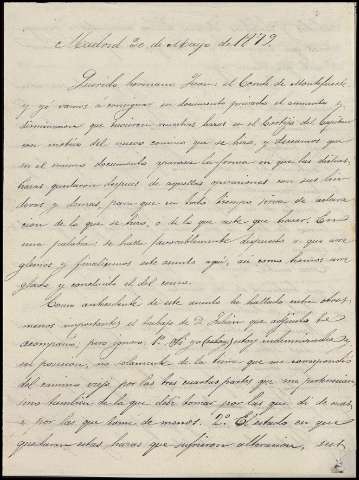 Madrid 20 de Mayo de 1879.
Querido hermano Juan: el Conde de
y yo vamos a consignar en documento privado el aumento y
disminucion que tuvieron nuestras hazas en el Cortijo del
con motivo del nuevo camino que se hizo, y deseamos que
en el mismo documento aparezca la forma en que las dichas
hazas quedaron despues de aquellas variaciones con sus linderos
y demas, para que en todo tiempo sirva de aclaracion
de lo que se hizo, o de lo que este que hacer. En
una palabra se halla favorablemente dispuesto a que arreglemos
y finalicemos este asunto aquí, así como hemos arreglado
y concluido el del
Como antecedente de este asunto he hallado entre otros
menos importantes el trabajo de D. Julian que adjunto te
acompaño, pero ignoro. 1º Si yo (estoy) estoy indemnizado y
en posesion, no solamente de la tierra que me corresponde
del camino viejo por las tres cuartas partes que me pertenecian
sino tambien de la que debí tomar por las que dí de mas,
y por las que tomé de menos. 2º El estado en que
quedaron estas hazas que sufrieron alteracion,